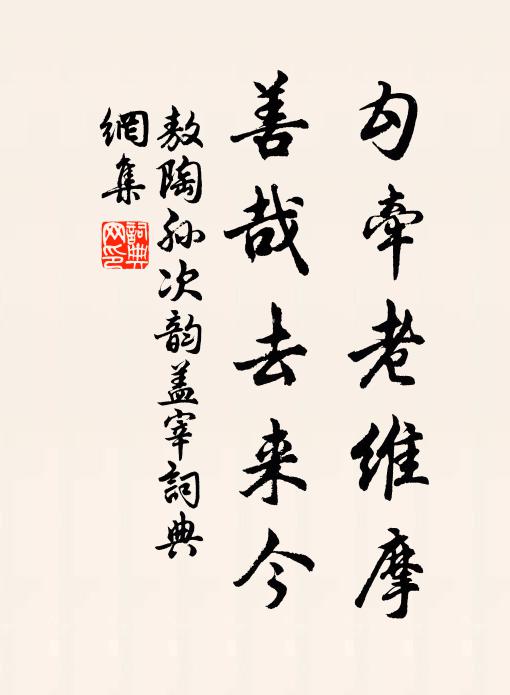 勾牵老维摩
善哉去来今
敖陶孙次韵盖宰詞典
網集
詞典
网印